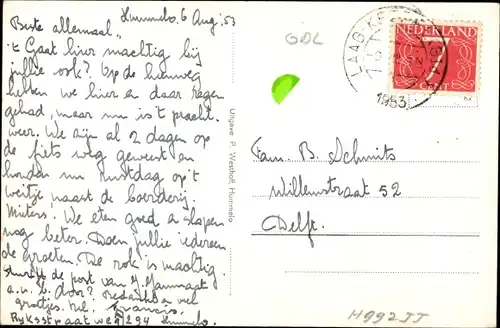 Hummelo. 6 Aug. 53
Beste allemaal,
't Gaat hier machtig bij
jullie ook? Op de heenweg
hebben we hier en daar regen
gehad, maar nu is 't pracht
weer. We zijn al 2 dagen op
de fiets weg geweest en
houden nu rustdag op 't
weitje naast de boerderij
We eten goed en slapen
nog beter. Doen jullie iedereen
de groeten. De rok is machtig.
de post van
a.u.b. door? Bedankt en vele
groetjes
Rijksstraatweg 294 Hummelo.
Uitgave P. Westhoff, Hummelo
GDL
LAAG-KE
1953
NEDERLAND
7
Fam. B. Schmits
Willemstraat 52
Delft.
H992JJ